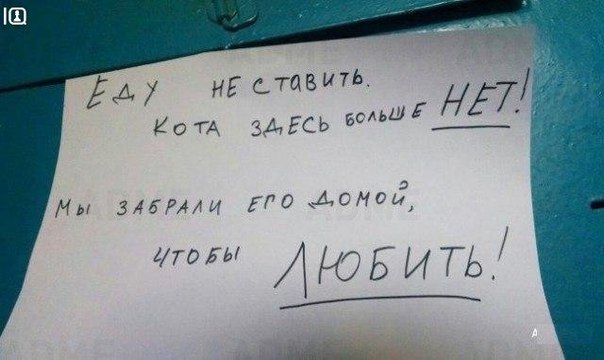 IQ
Еду не ставить.
Кота здесь больше НЕТ!
Мы забрали его домой,
чтобы ЛЮБИТЬ!